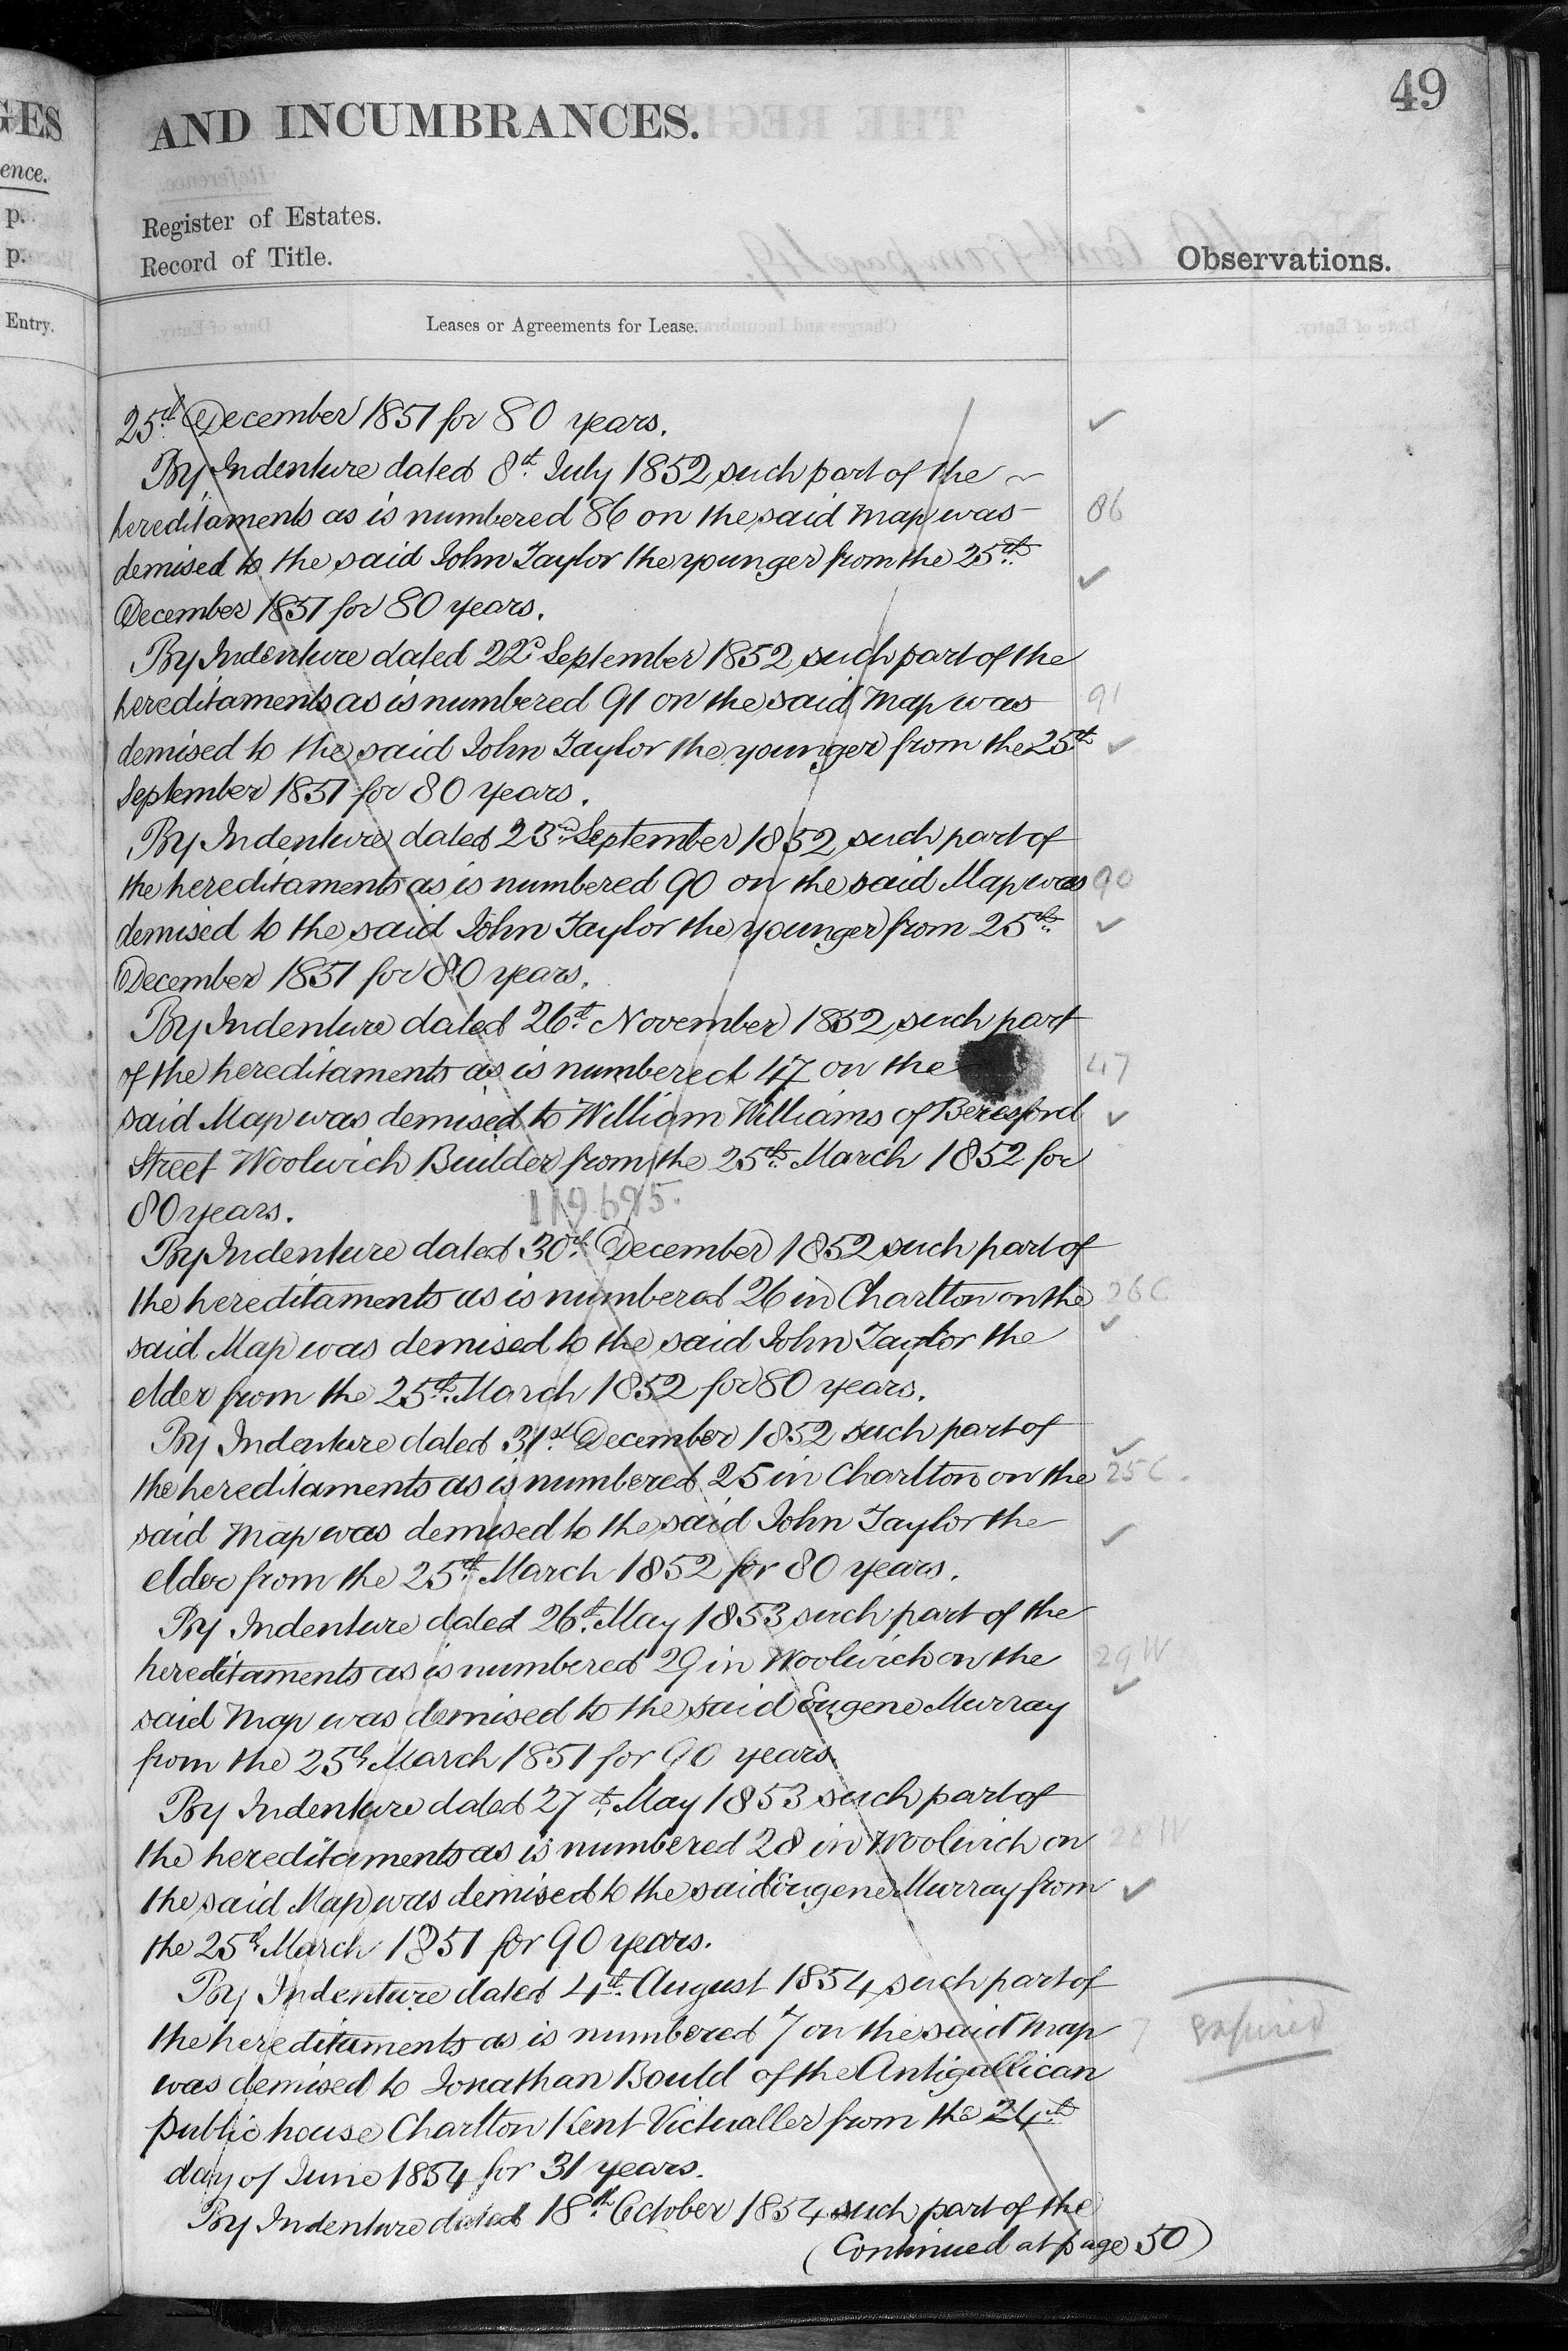 GES
ence.
p.
p.
Entry.
49
AND INCUMBRANCES.
Register of Estates.
Record of Title.
Observations.
Leases or Agreements for Lease.
25th December 1851 for 80 years.
By Indenture dated 8th July 1852 such part of the
hereditaments as is numbered 86 on the said Map was 86
demised to the said John Taylor the younger from the 25th
December 1851 for 80 years.
By Indenture dated 22d September 1852 such part of the
hereditaments as is numbered 91 on the said Map was 91
demised to the said John Taylor the younger from the 25th
September 1851 for 80 years.
By Indenture dated 23rd September 1852 such part of
the hereditaments as is numbered 90 on the said Map was 90
demised to the said John Taylor the younger from 25th
December 1851 for 80 years.
By Indenture dated 26th November 1852 such part
of the hereditaments as is numbered 47 on the 47
said Map was demised to William Williams of Beresford
Street Woolwich Builder from the 25th March 1852 for
80 years. 119695.
By Indenture dated 30th December 1852 such part of
the hereditaments as is numbered 26 in Charlton on the 26 C
said Map was demised to the said John Taylor the
elder from the 25th March 1852 for 80 years.
By Indenture dated 31st December 1852 such part of
the hereditaments as is numbered 25 in Charlton on the 25 C.
said Map was demised to the said John Taylor the
elder from the 25th March 1852 for 80 years.
By Indenture dated 26th May 1853 such part of the
hereditaments as is numbered 29 in Woolwich on the 29 W
said Map was demised to the said Eugene Murray
from the 25th March 1851 for 90 years.
By Indenture dated 27th May 1853 such part of
the hereditaments as is numbered 28 in Woolwich on 28 W
the said Map was demised to the said Eugene Murray from
the 25th March 1851 for 90 years.
By Indenture dated 4th August 1854 such part of
the hereditaments as is numbered 7 on the said Map 7 expired
was demised to Jonathan Bould of the Antigallican
public house Charlton Kent Victualler from the 24th
day of June 1854 for 31 years.
By Indenture dated 18th October 1854 such part of the
(Continued at page 50)